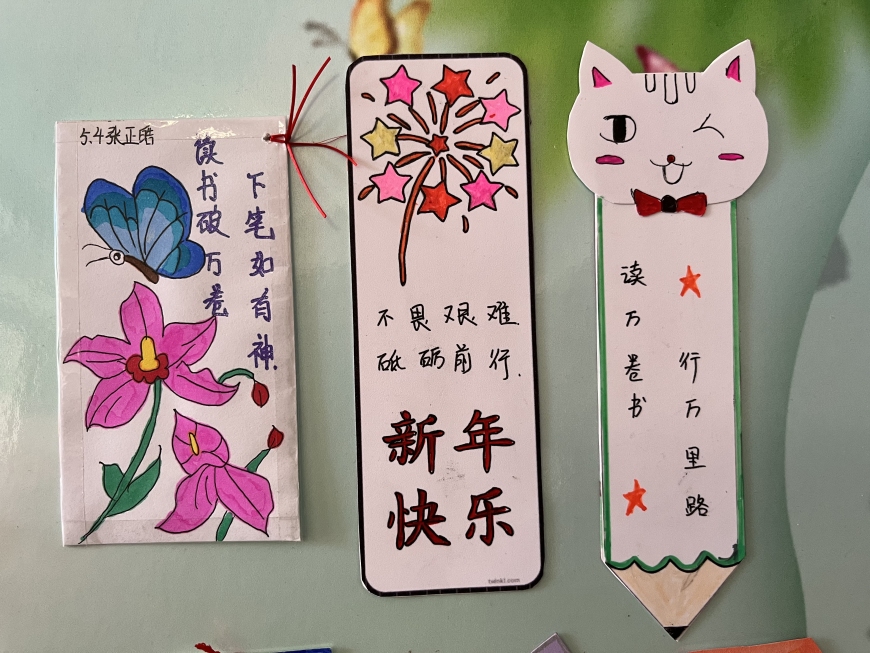 5.4张正皓
读书破万卷
下笔如有神.
不畏艰难
砥砺前行.
新年
快乐
twinkl.com
读万卷书
行万里路